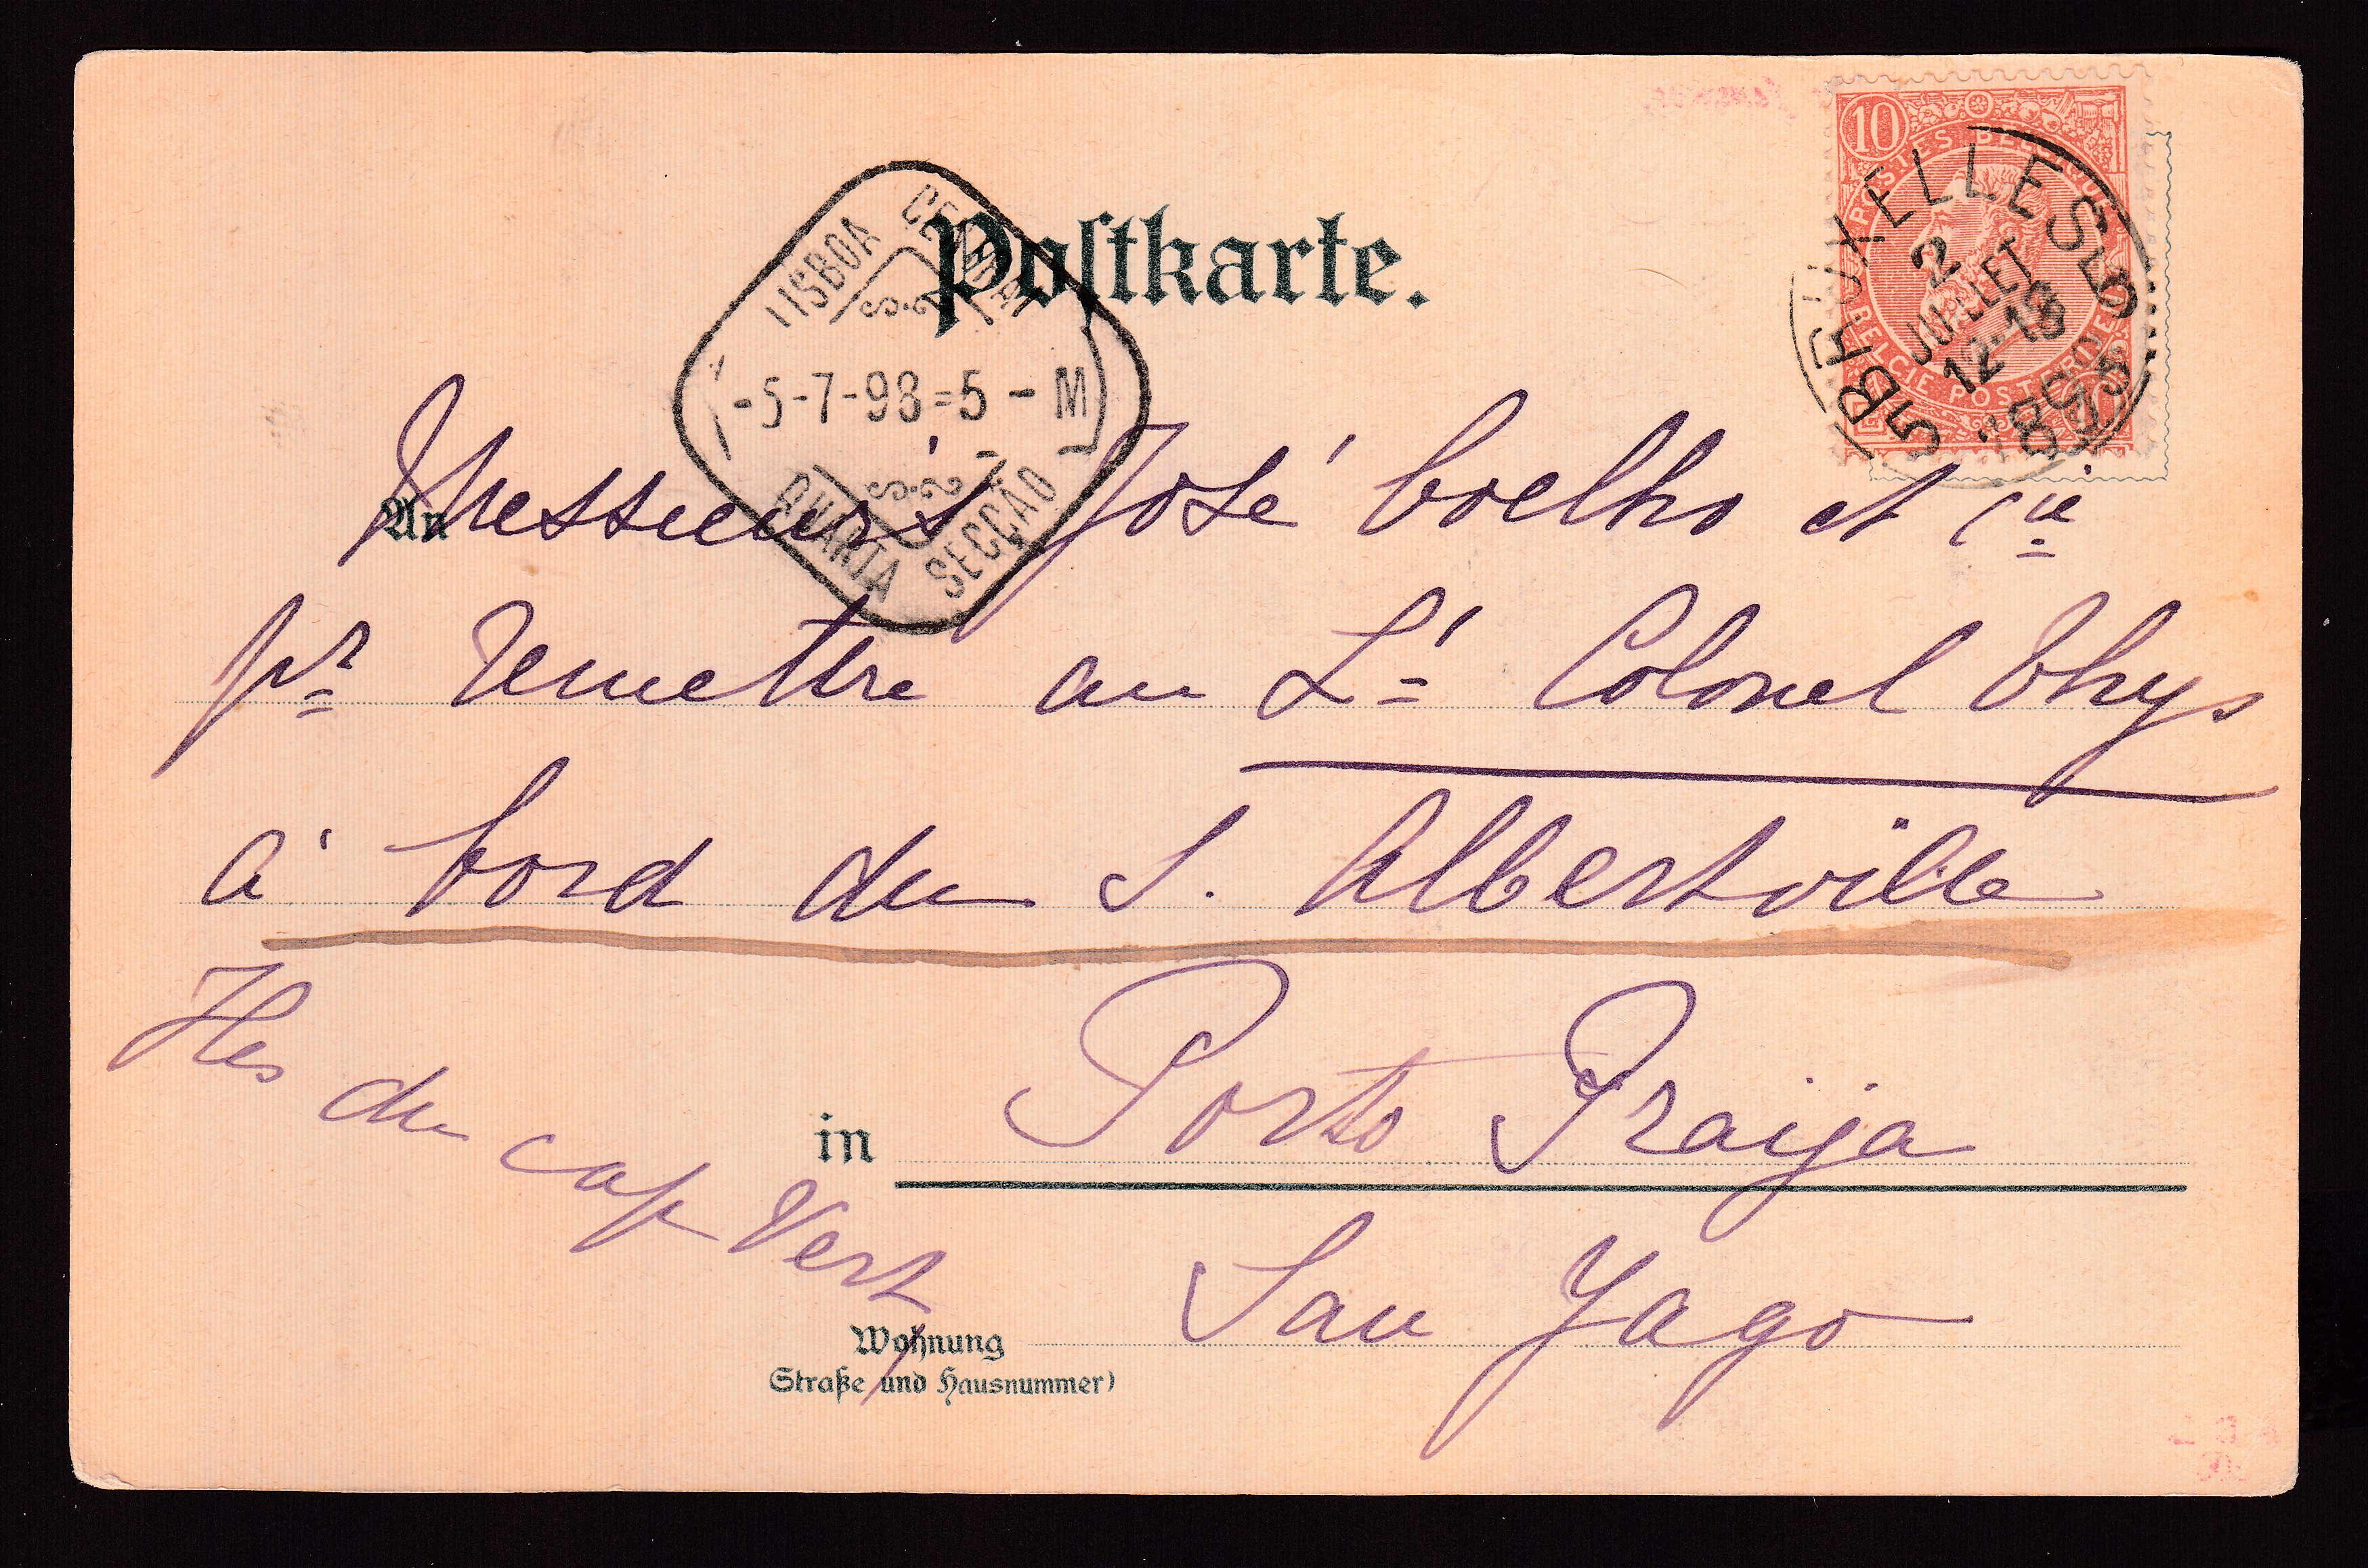 Postkarte.
10
POSTES BELGIQUE
BELGIE POSTERIJEN
BRUXELLES 5
2
JUILLET
12-13
1898
5
LISBOA CENTRAL
-5-7-98=5-M
QUARTA SECÇÃO
An Messieurs José Coelho et Cie
pr remettre au Lt Colonel Thys
à bord du S. Albertville
Iles du cap Vert
in Porto Praija
San Yago
Wohnung
Straße und Hausnummer)